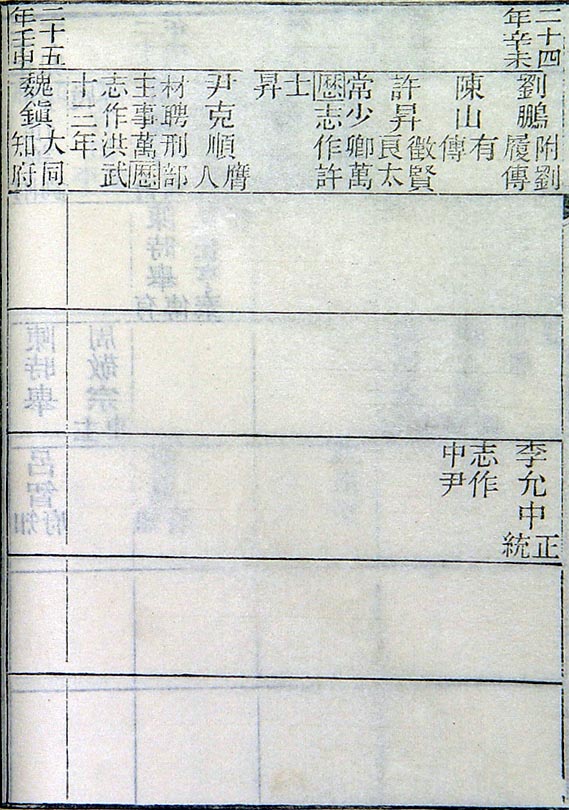 二十四
年辛未
劉鵬附劉
履傳
陳山有
傳
許昇徵賢
良太
常少卿萬
歷志作許
士
昇
尹克順膺
人
材聘刑部
主事萬歷
志作洪武
十三年
李允中正
統
志作
中尹
二十五
年壬申
魏鎭大同
知府